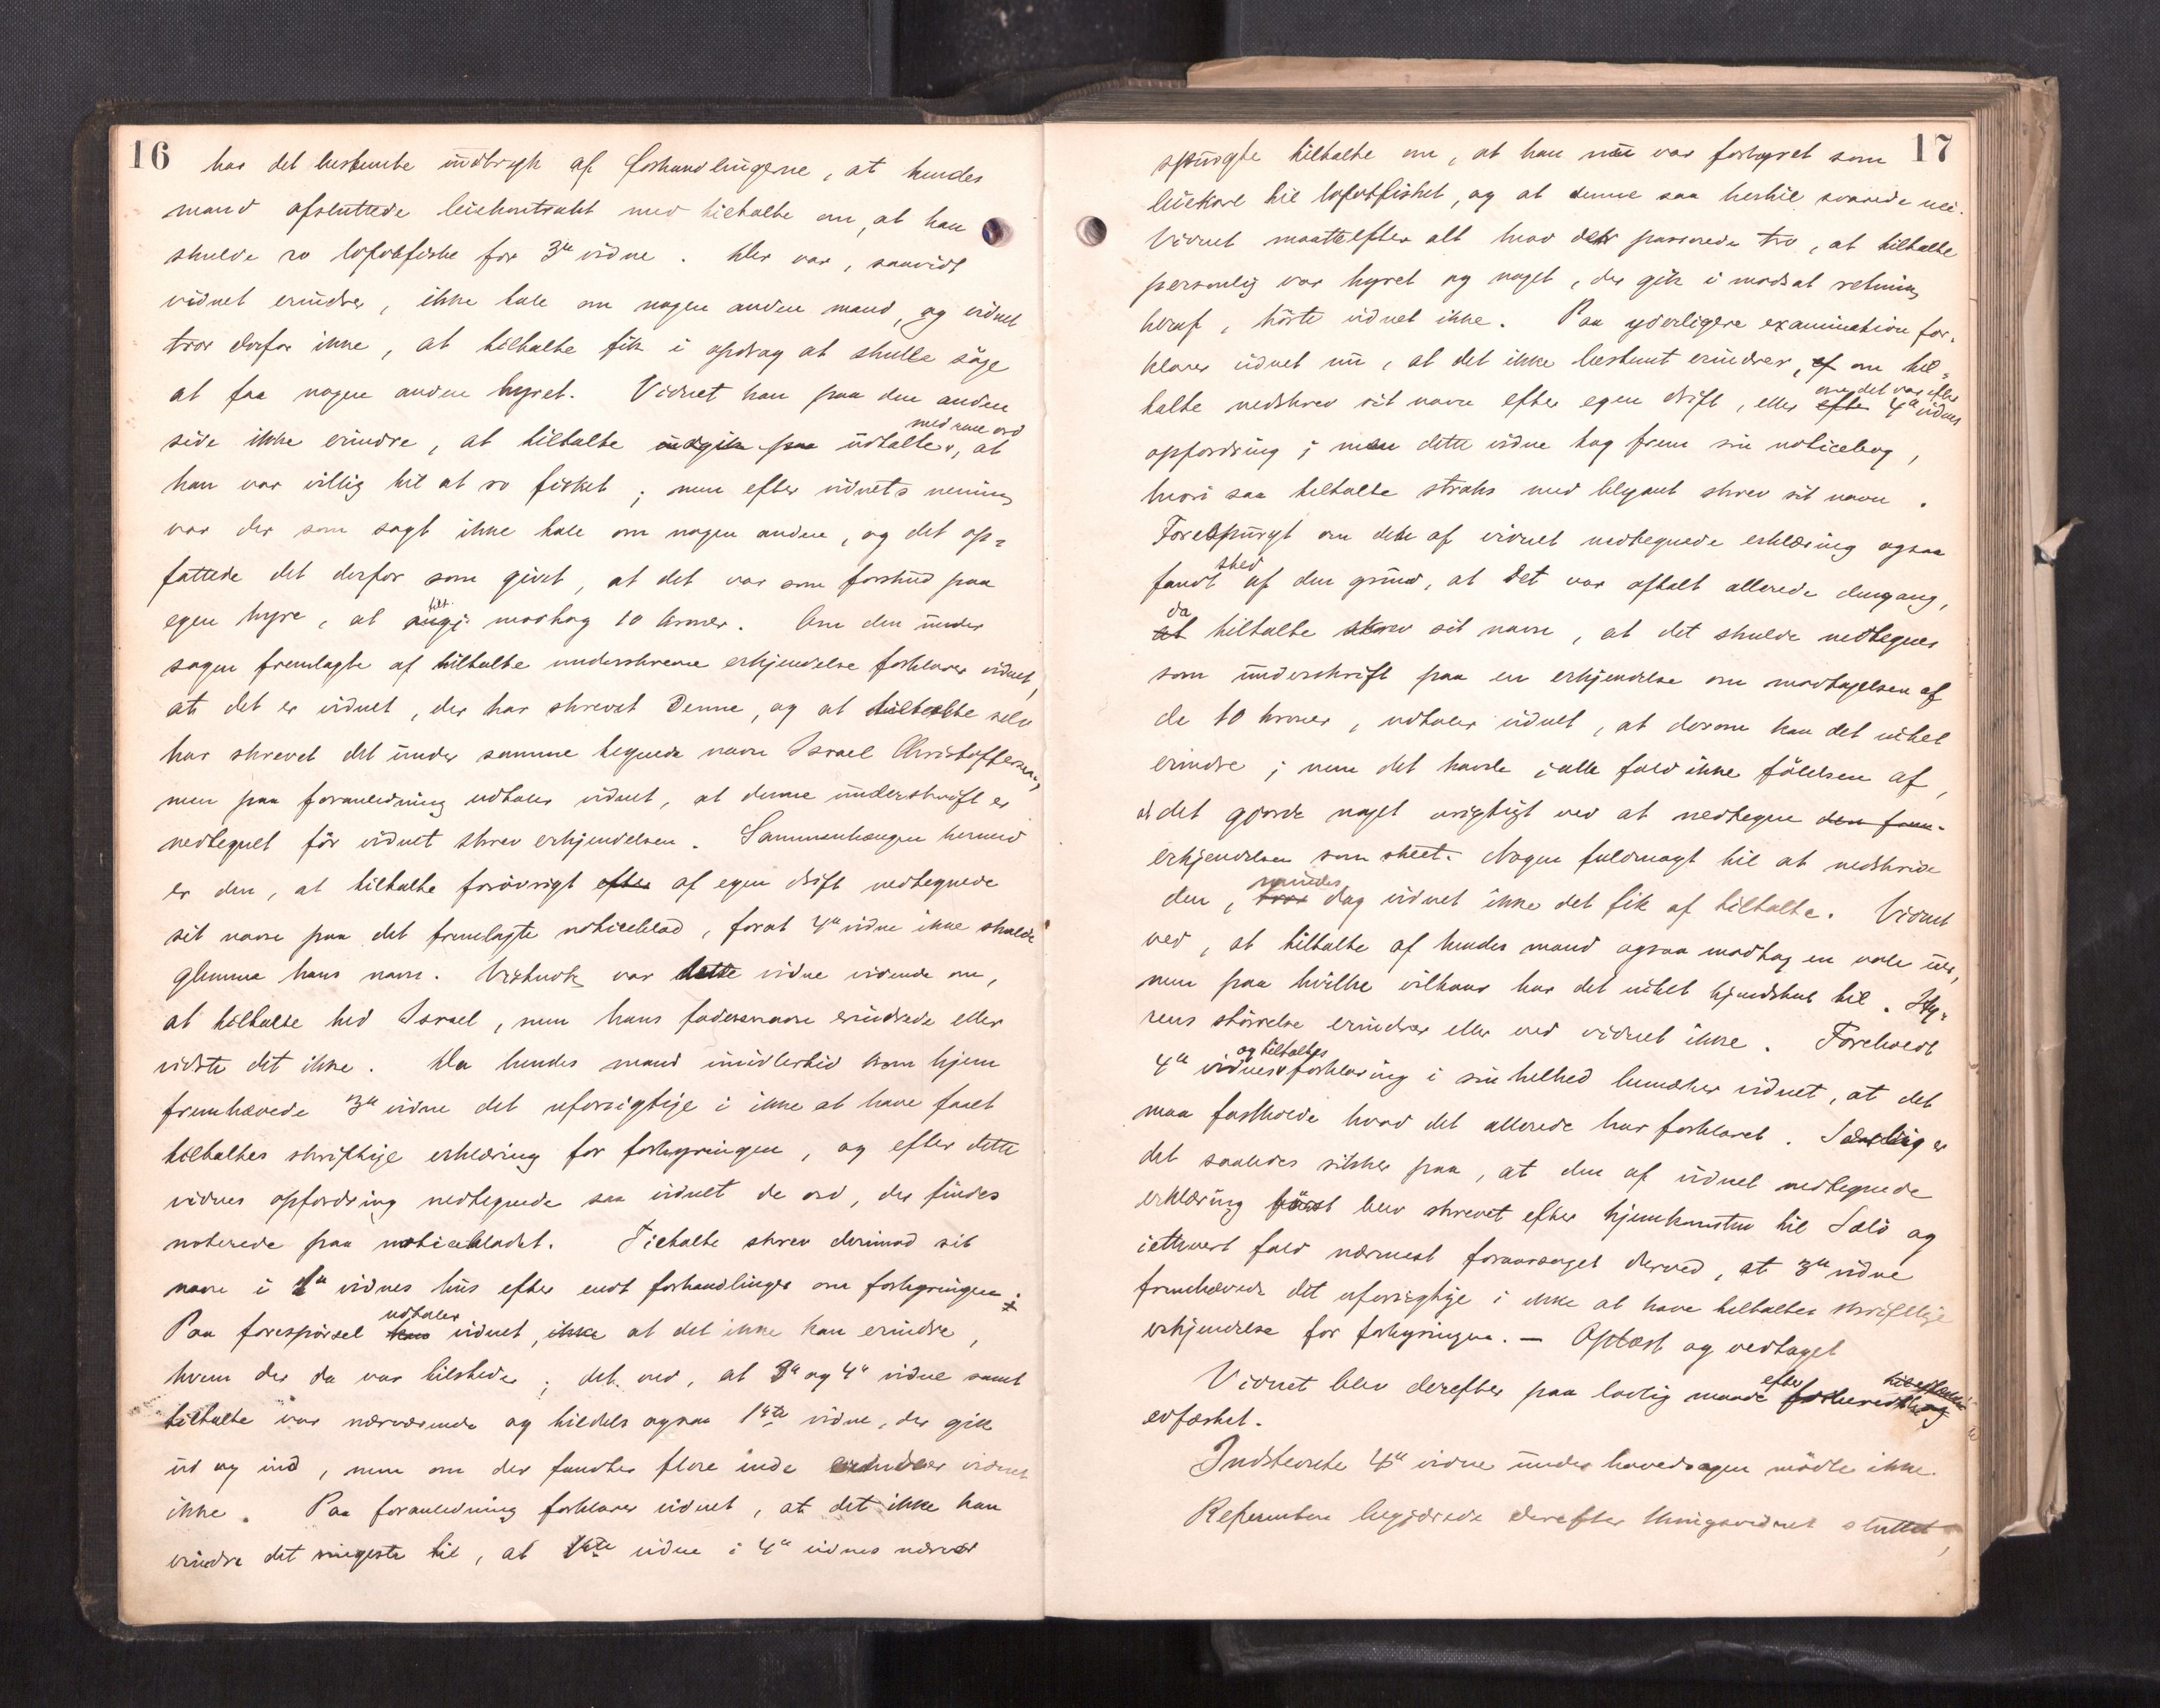 16
har det bestemte indtryk af forhandlingerne, at hendes
mand afsluttede leiekontrakt med tiltalte om, at han
skulde ro lofotfiske for 3die vidne. Der var, saavidt
vidnet erindrer, ikke tale om nogen anden mand, og vidnet
tror derfor ikke, at tiltalte fik i opdrag at skulle söge
at faa nogen anden hyret. Vidnet kan paa den anden
side ikke erindre, at tiltalte indgik paa udtalte med rene ord, at
han var villig til at ro fisket; men efter vidnets mening
var der som sagt ikke tale om nogen anden, og det op-
fattede det derfor som givet, at det var som forskud paa
egen hyre, at tilt. modtog 10 kroner. Om den under
sagen fremlagte af tiltalte underskrevne erkjendelse forklarer vidnet,
at det er vidnet, der har skrevet denne, og at tiltalte selv
har skrevet det under samme tegnede navn Israel Christoffersen,
men paa foranledning udtaler vidnet, at denne underskrift er
nedtegnet för vidnet skrev erkjendelsen. Sammenhængen hermed
er den, at tiltalte forövrigt efter af egen drift nedtegnede
sit navn paa det fremlagte noticeblad, forat 4de vidne ikke skulde
glemme hans navn. Vistnok var dette vidne vidende om,
at tiltalte hed Israel, men hans fadersnavn erindrede eller
vidste det ikke. Da hendes mand imidlertid kom hjem
fremhævede 3die vidne det uforsigtige i ikke at have faaet
tiltaltes skriftlige erklæring for forhyringen, og efter dette
vidnes opfordring nedtegnede saa vidnet de ord, der findes
noterede paa noticebladet. Tiltalte skrev derimod sit
navn i 1ste vidnes hus efter endt forhandlinger om forhyringen.
Paa forespörsel kan udtaler vidnet, ikke at det ikke kan erindre,
hvem der da var tilstede; det ved, at 3die og 4de vidne samt
tiltalte var nærværende og tildels ogsaa 1ste vidne, der gik
ud og ind, men om der fandtes flere inde erindrer vidnet
ikke. Paa foranledning forklarer vidnet, at det ikke kan
erindre det ringeste til, at 1ste vidne i 4de vidnes nærvær
17
spurgte tiltalte om, at han nu var forhyret som
leiekarl til lofotfisket, og at denne saa hertil svarede nei.
Vidnet maatte efter alt hvad der passerede tro, at tiltalte
personlig var hyret og noget, der gik i modsat retning
heraf, hörte vidnet ikke. Paa yderligere examination for-
klarer vidnet nu, at det ikke bestemt erindrer, af om til-
talte nedskrev sit navn efter egen drift, eller efter om det var efter 4de vidnes
opfordring; men dette vidne tog frem sin noticebog,
hvori saa tiltalte straks med blyant skrev sit navn.
Forespurgt om dette af vidnet nedtegnede erklæring ogsaa
fandt sted af den grund, at det var aftalt allerede dengang,
at da tiltalte skrev sit navn, at det skulde nedtegnes
som underskrift paa en erkjendelse om modtagelsen af
de 10 kroner, udtaler vidnet, at derom kan det intet
erindre; men det havde ialle fald ikke fölelsen af,
at det gjorde noget urigtigt ved at nedtegne den frem-
erkjendelsen som skeet. Nogen fuldmagt til at nedskrive
den, tror mindes dog vidnet ikke det fik af tiltalte. Vidnet
ved, at tiltalte af hendes mand ogsaa modtog en vale uer,
men paa hvilke vilkaar har det intet kjendskab til. Hy-
rens störrelse erindrer eller ved vidnet ikke. Foreholdt
4de vidnes og tiltaltes forklaring i sin helhed bemærker vidnet, at det
maa fastholde hvad det allerede har forklaret. Særlig er
det saaledes sikker paa, at den af vidnet nedtegnede
erklæring först blev skrevet efter hjemkomsten til Salö og
iethvert fald nærmest foraarsaget derved, at 3die vidne
fremhævede det uforsigtige i ikke at have tiltaltes skriftlige
erkjendelse for forhyringen. — Oplæst og vedtaget
Vidnet blev derefter paa lovlig maade efter forberedelse
edfæstet.
Indstevnte 4de vidne under hovedsagen mödte ikke.
Referenten begjærede derefter thingsvidnet sluttet,